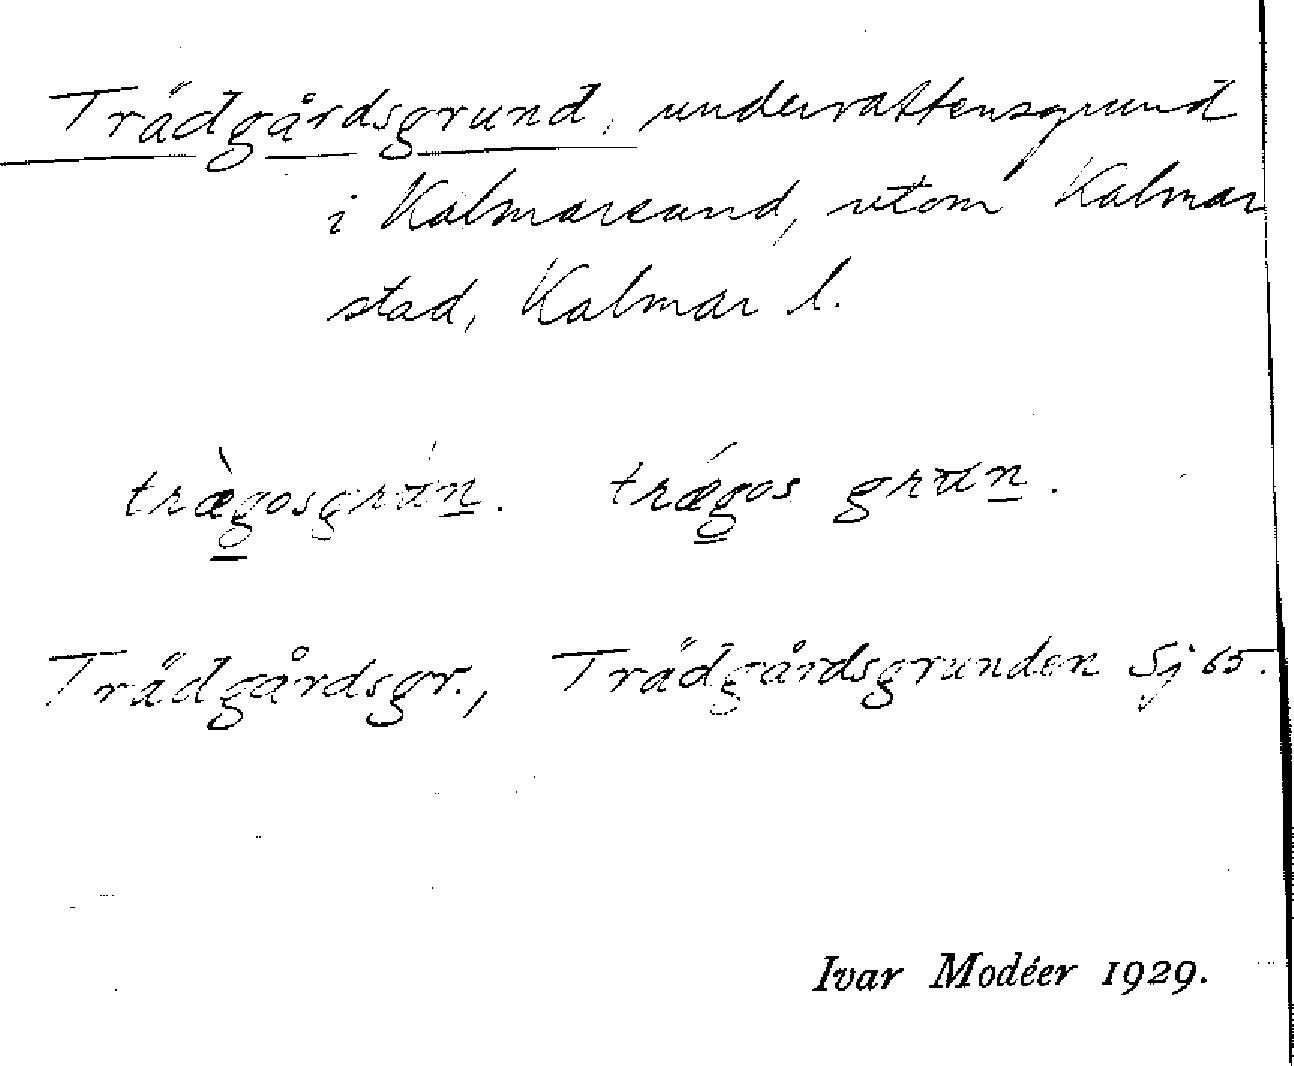 Trädgårdsgrund, undervattensgrund
i Kalmarsund, utom Kalmar
stad, Kalmar l.
træ̀gosgrun. trǽgos grun.
Trädgårdsgr., Trädgårdsgrunden Sj 65.
Ivar Modéer 1929.